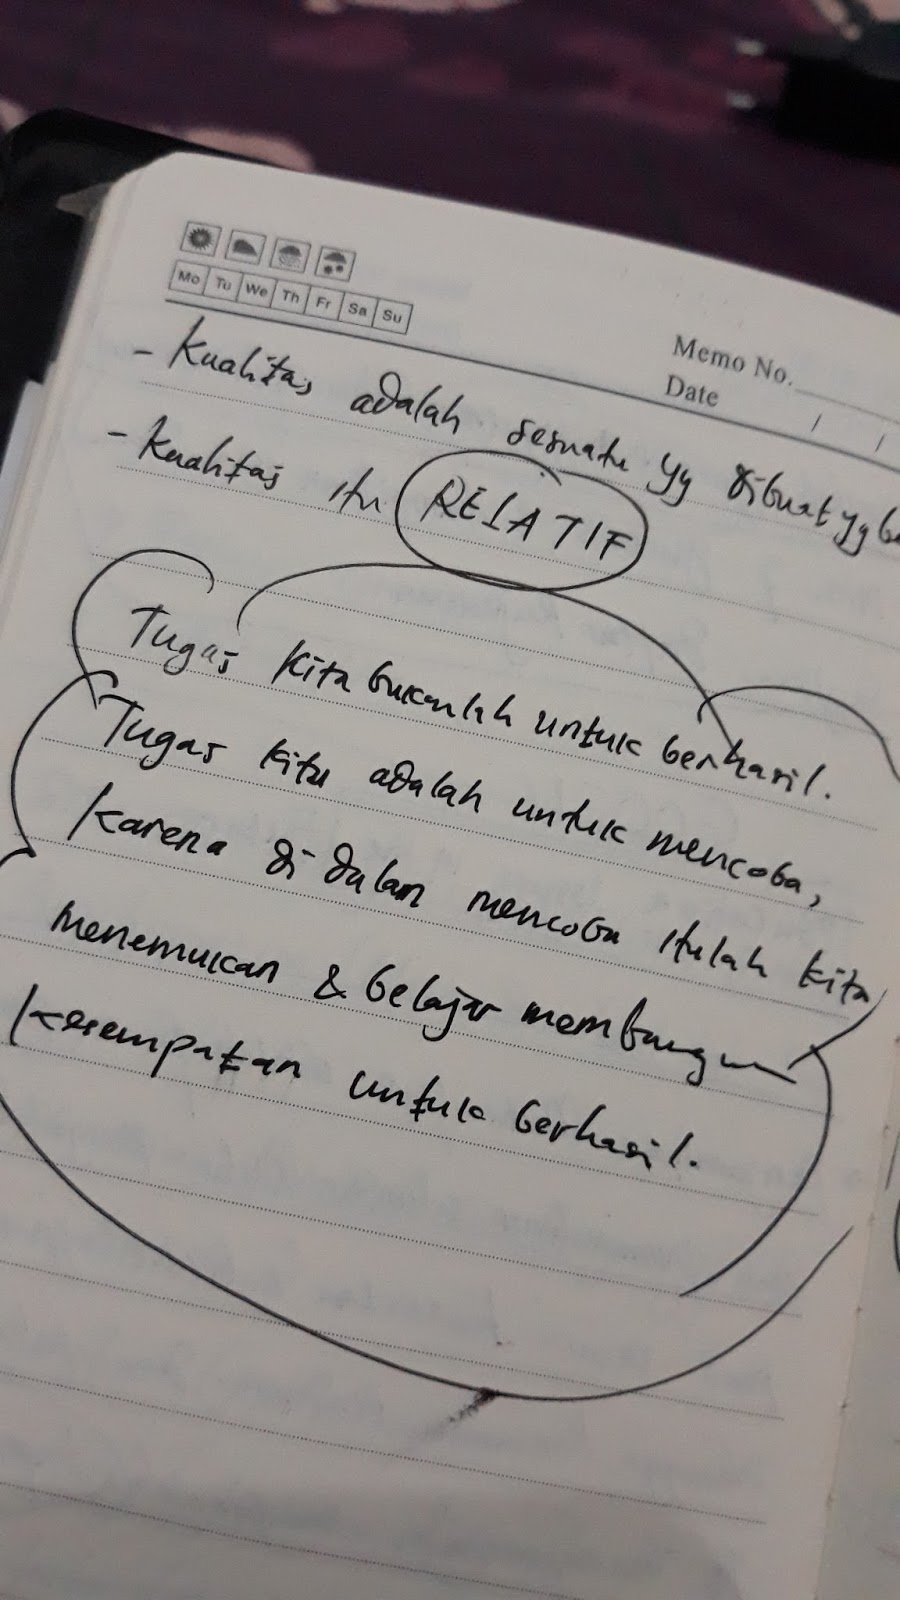 Mo Tu We Th Fr Sa Su
Memo No.
Date / /
- Kualitas adalah sesuatu yg dibuat yg
- Kualitas itu RELATIF
Tugas kita bukanlah untuk berhasil.
Tugas kita adalah untuk mencoba,
Karena di dalam mencoba itulah kita
menemukan & belajar membangun
kesempatan untuk berhasil.